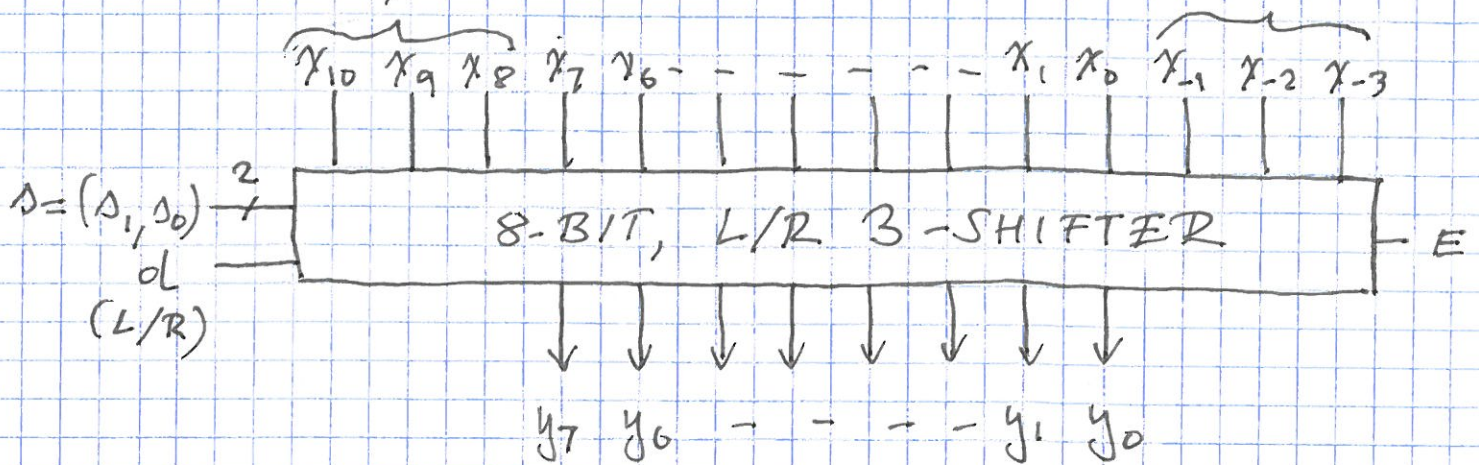 x₁₀ x₉ x₈ x₇ x₆ - - - - - x₁ x₀ x₋₁ x₋₂ x₋₃
2
s = (s₁, s₀)
8-BIT, L/R 3-SHIFTER
E
d
(L/R)
y₇ y₆ - - - - y₁ y₀